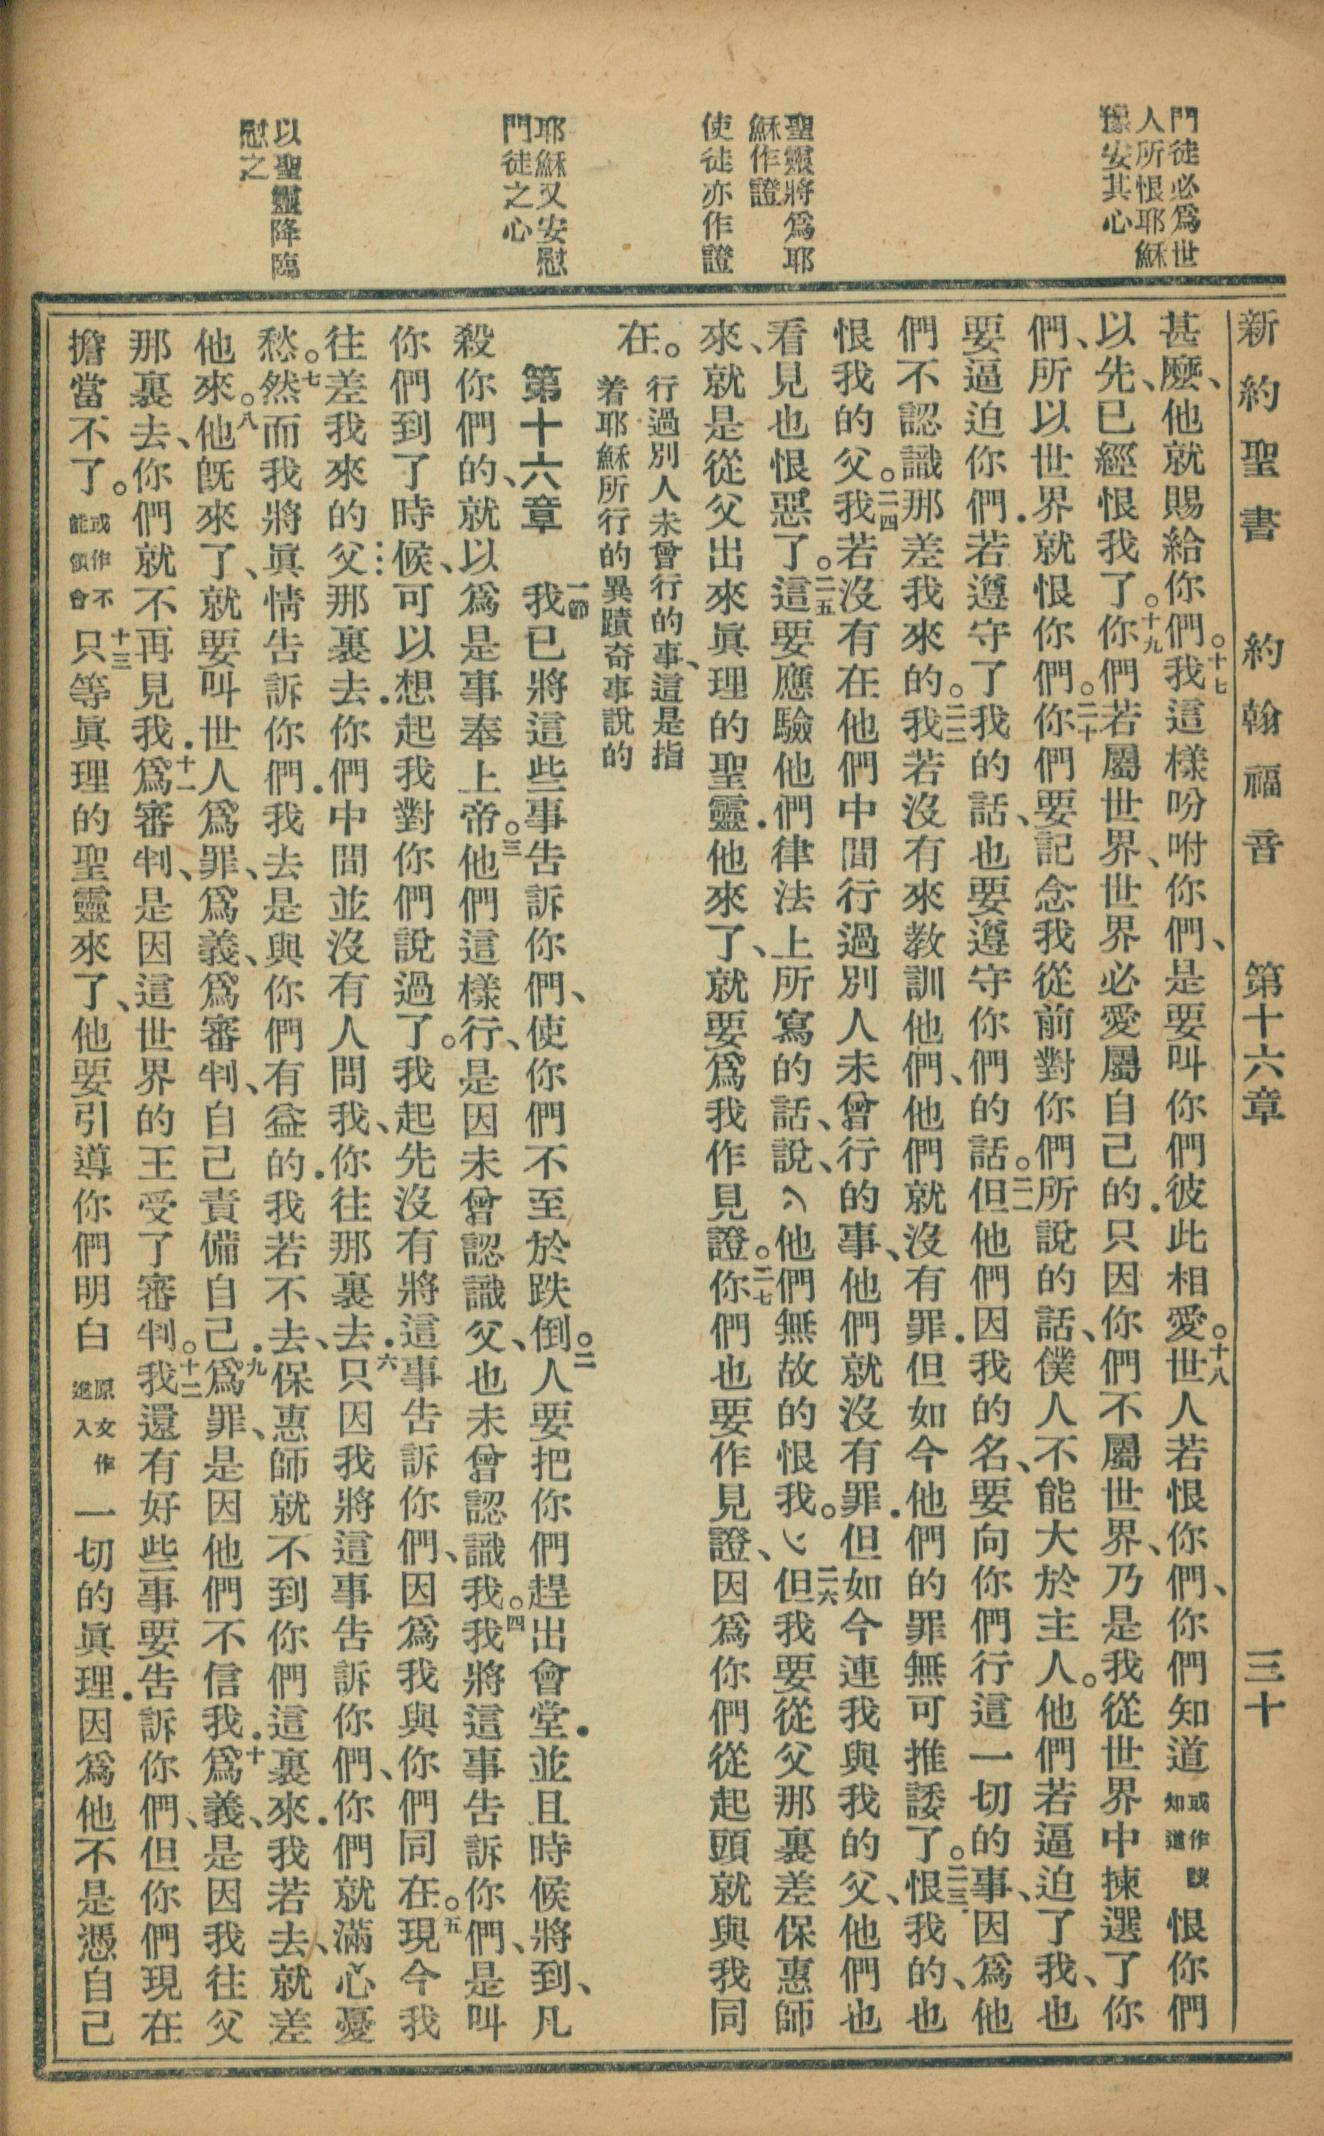 門徒必爲世
人所恨耶穌
豫安其心
聖靈將爲耶
穌作證
使徒亦作證
耶穌又安慰
門徒之心
以聖靈降臨
慰之
新約聖書 約翰福音 第十六章 三十
甚麼、他就賜給你們。十七我這樣吩咐你們、是要叫你們彼此相愛。十八世人若恨你們、你們知道或作該知道恨你們
以先、已經恨我了。十九你們若屬世界、世界必愛屬自己的．只因你們不屬世界、乃是我從世界中揀選了你
們、所以世界就恨你們。二十你們要記念我從前對你們所說的話、僕人不能大於主人。他們若逼迫了我、也
要逼迫你們．若遵守了我的話、也要遵守你們的話。二一但他們因我的名、要向你們行這一切的事、因爲他
們不認識那差我來的。二二我若沒有來教訓他們、他們就沒有罪．但如今他們的罪無可推諉了。二三恨我的、也
恨我的父。二四我若沒有在他們中間行過別人未曾行的事、他們就沒有罪．但如今連我與我的父、他們也
看見也恨惡了。二五這要應驗他們律法上所寫的話、說、〈他們無故的恨我。〉二六但我要從父那裏差保惠師
來、就是從父出來眞理的聖靈．他來了、就要爲我作見證。二七你們也要作見證、因爲你們從起頭就與我同
在。行過別人未曾行的事、這是指
着耶穌所行的異蹟奇事說的
第十六章 一節我已將這些事告訴你們、使你們不至於跌倒。二人要把你們趕出會堂．並且時候將到、凡
殺你們的、就以爲是事奉上帝。三他們這樣行、是因未曾認識父、也未曾認識我。四我將這事告訴你們、是叫
你們到了時候、可以想起我對你們說過了。我起先沒有將這事告訴你們、因爲我與你們同在。五現今我
往差我來的父那裏去．你們中間並沒有人問我、你往那裏去．六只因我將這事告訴你們、你們就滿心憂
愁。七然而我將眞情告訴你們．我去是與你們有益的．我若不去、保惠師就不到你們這裏來．我若去、就差
他來。八他既來了、就要叫世人爲罪、爲義、爲審判、自己責備自己．九爲罪、是因他們不信我．十爲義、是因我往父
那裏去、你們就不再見我．十一爲審判、是因這世界的王受了審判。十二我還有好些事要告訴你們、但你們現在
擔當不了。或作不能領會十三只等眞理的聖靈來了、他要引導你們明白原文作進入一切的眞理．因爲他不是憑自己